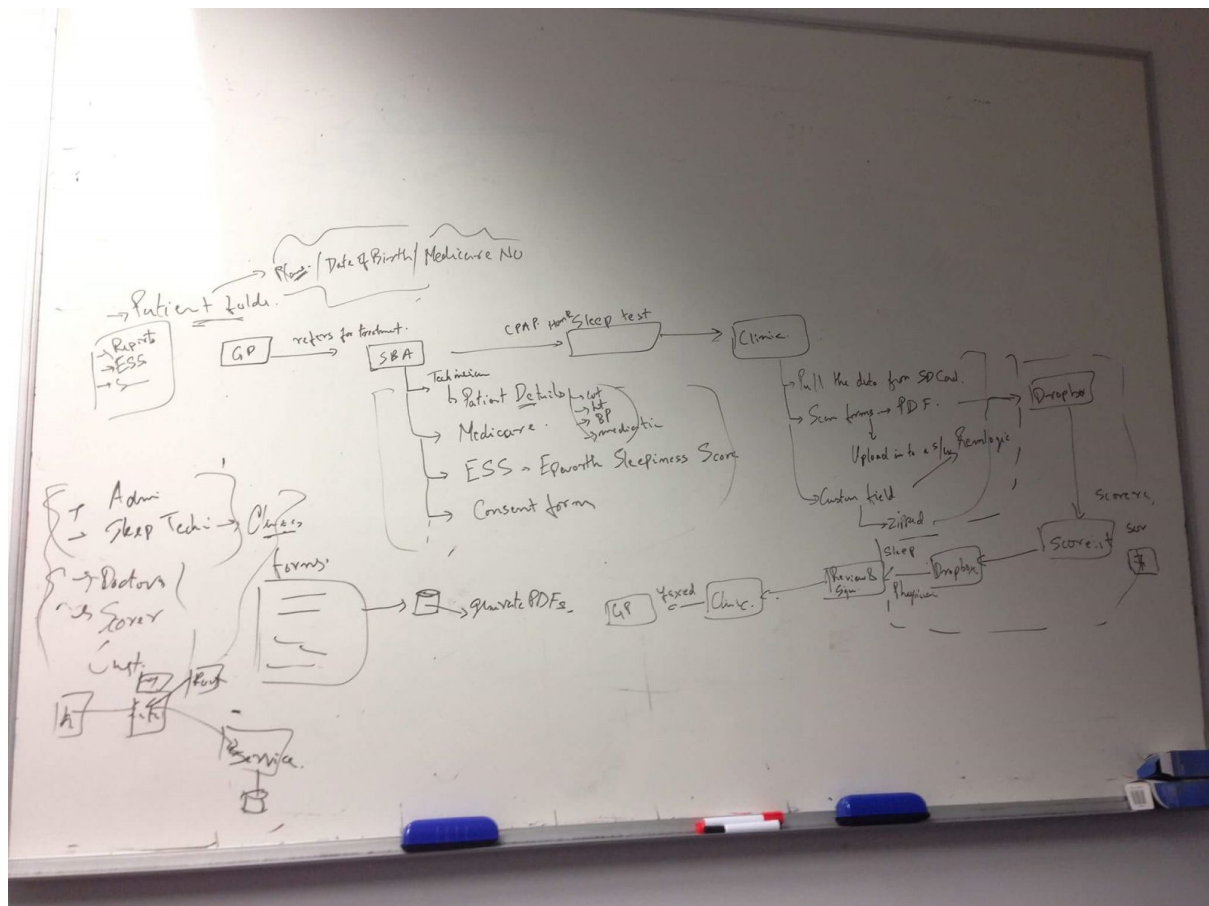 / Date of Birth / Medicare No
→ Patient folde.
→ Reports
→ ESS
→ S
GP
refers for treatment.
SBA
CPAP Home Sleep test
Clinic
Technician
↳ Patient Details
→ wt
→ ht
→ BP
→ medication
→ Medicare.
→ ESS → Epworth Sleepiness Score
→ Consent form
→ Pull the data from SD Card.
→ Scan forms → PDF.
Upload in to a s/w Remlogic
→ Custom field
→ Zipped
Dropbox
Scorer
Score it
Dropbox
Sleep
Physician
Review &
Sign
Clinic.
faxed
GP
→ Admi
→ Sleep Techi →
→ Doctors
→ Scorer
forms.
→ generate PDFs.
Service.